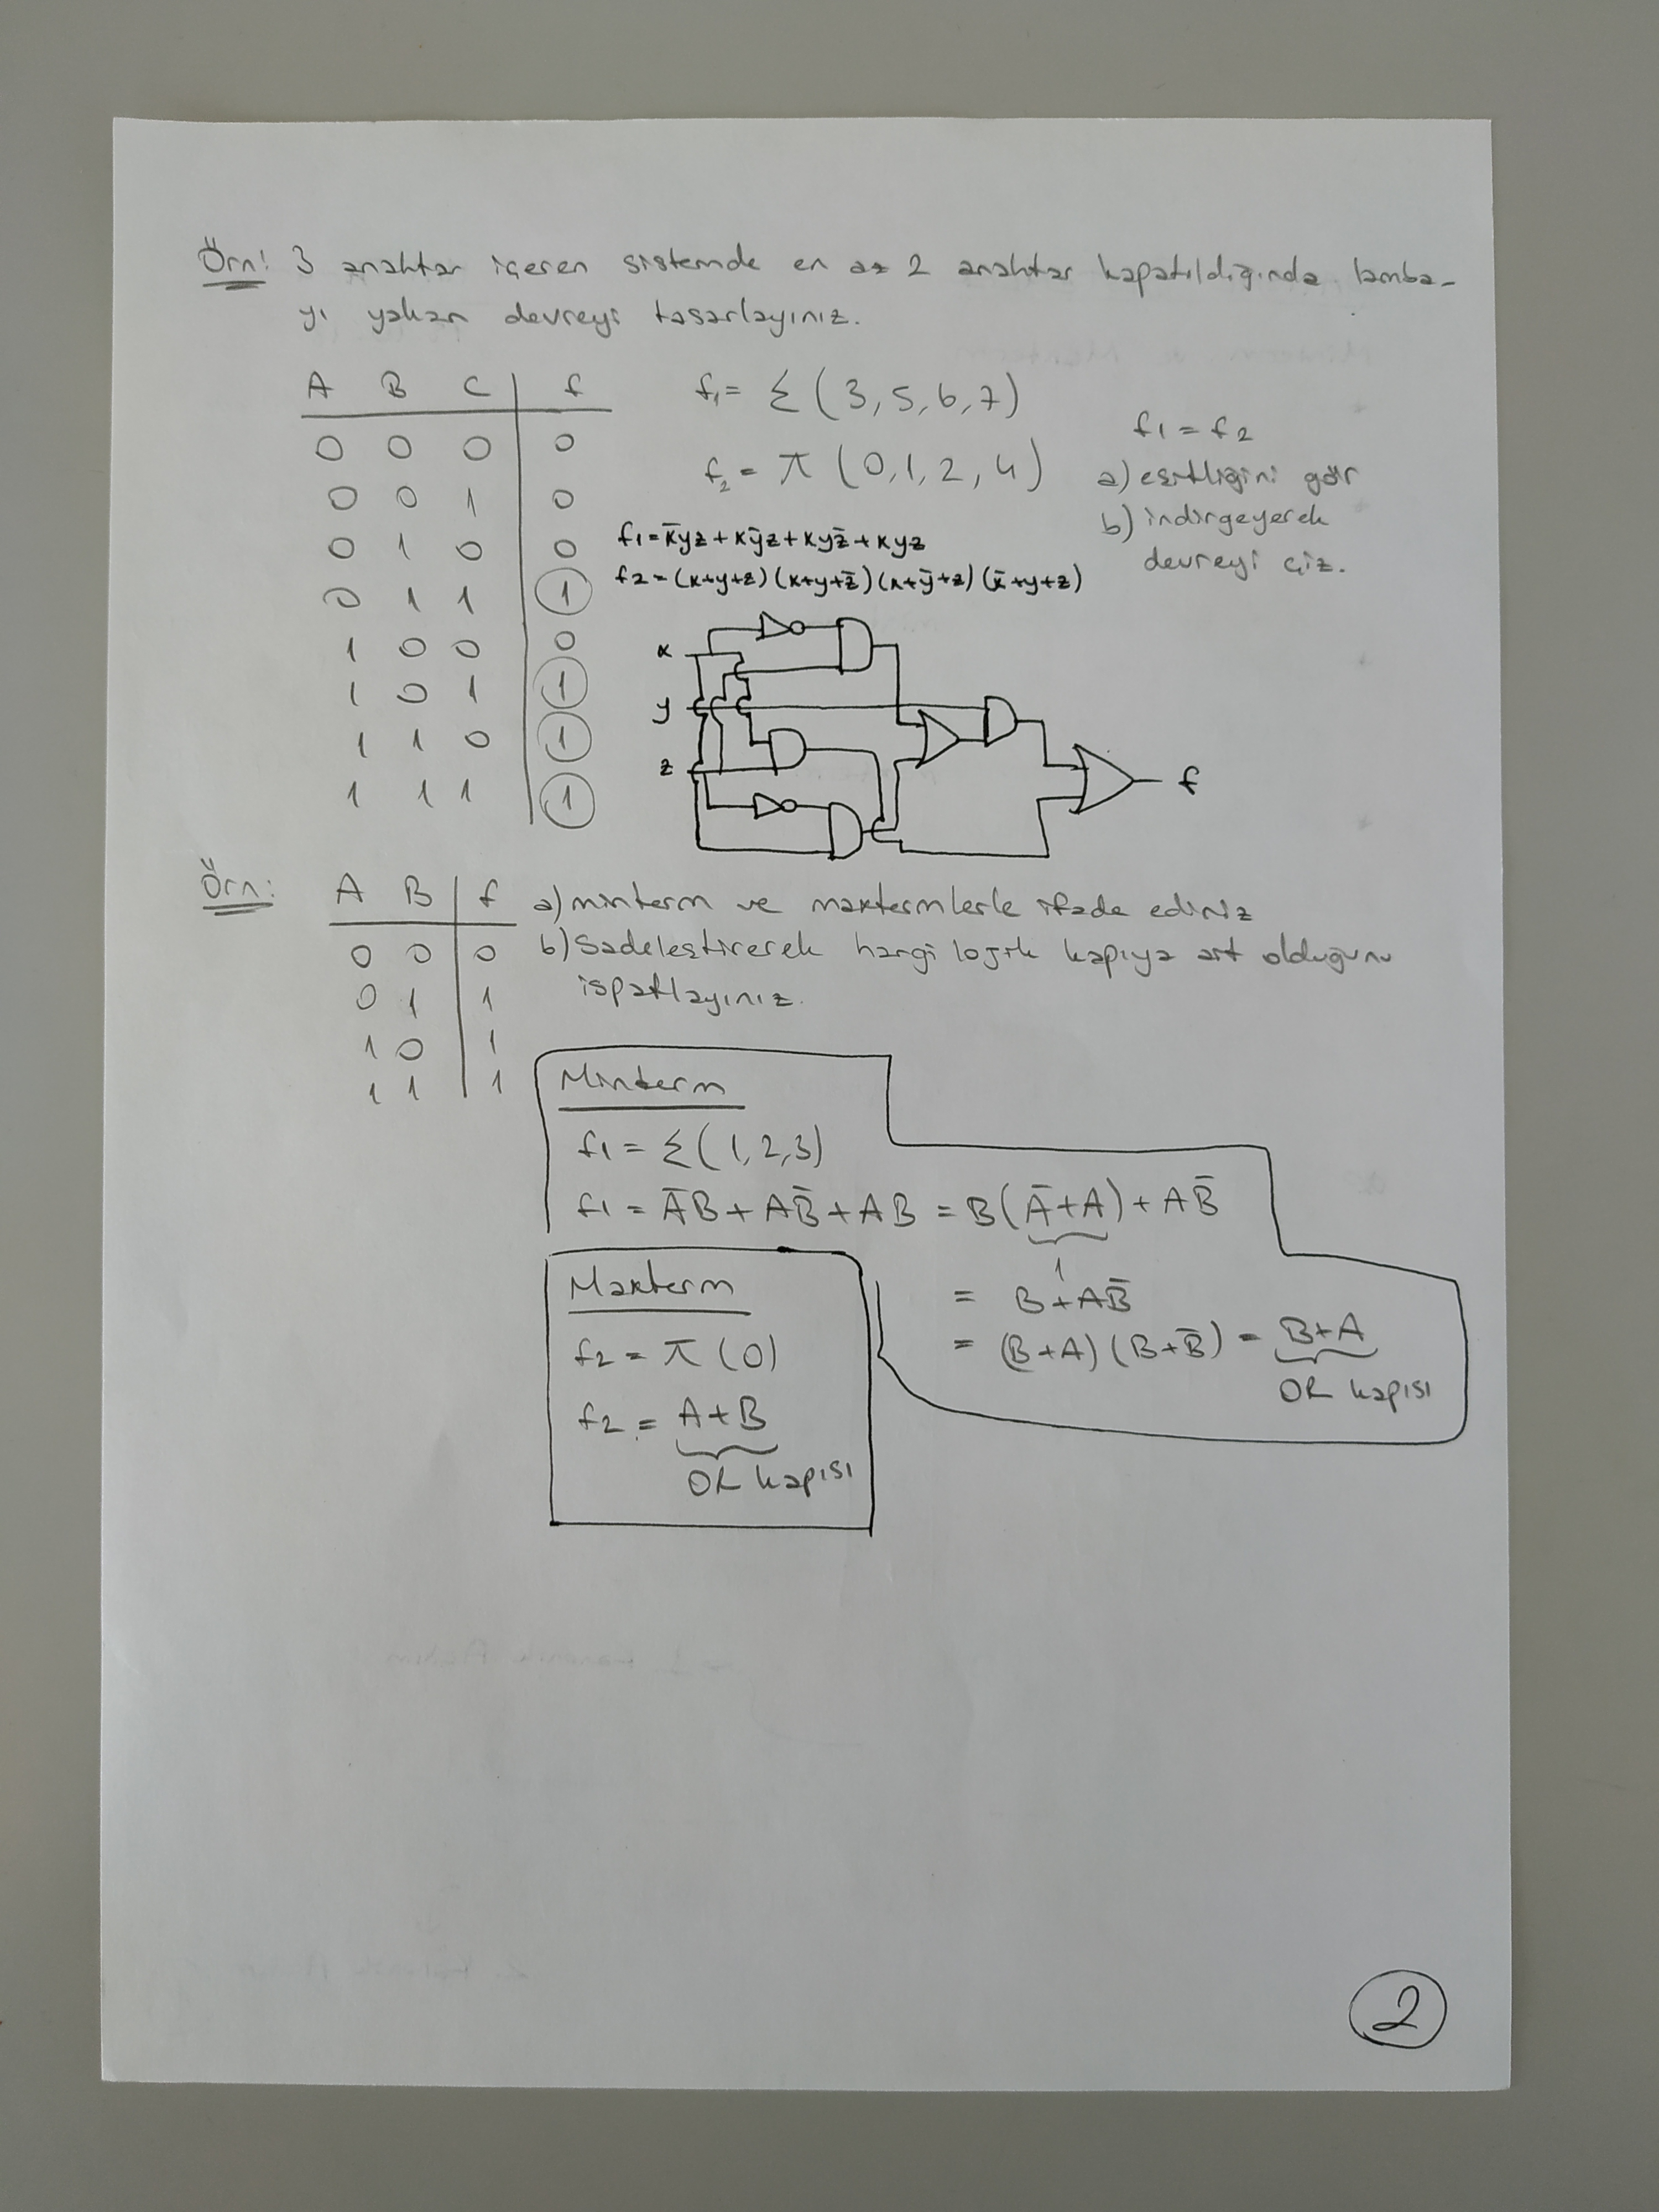 Örn: 3 anahtar içeren sistemde en az 2 anahtar kapatıldığında lamba-
yı yakan devreyi tasarlayınız.
A B C f
0 0 0 0
0 0 1 0
0 1 0 0
0 1 1 1
1 0 0 0
1 0 1 1
1 1 0 1
1 1 1 1
f₁ = Σ(3,5,6,7)
f₂ = π(0,1,2,4)
f₁ = f₂
a) eşitliğini gör
b) indirgeyerek
devreyi çiz.
f₁ = x̄yz + xȳz + xyz̄ + xyz
f₂ = (x+y+z)(x+y+z̄)(x+ȳ+z)(x̄+y+z)
x
y
z
f
Örn:
A B f
0 0 0
0 1 1
1 0 1
1 1 1
a) minterm ve maxtermlerle ifade ediniz
b) Sadeleştirerek hangi lojik kapıya ait olduğunu
ispatlayınız.
Minterm
f₁ = Σ(1,2,3)
f₁ = ĀB + AB̄ + AB = B(Ā+A) + AB̄
1
= B + AB̄
= (B+A)(B+B̄) = B+A
OR kapısı
Maxterm
f₂ = π(0)
f₂ = A+B
OR kapısı
2